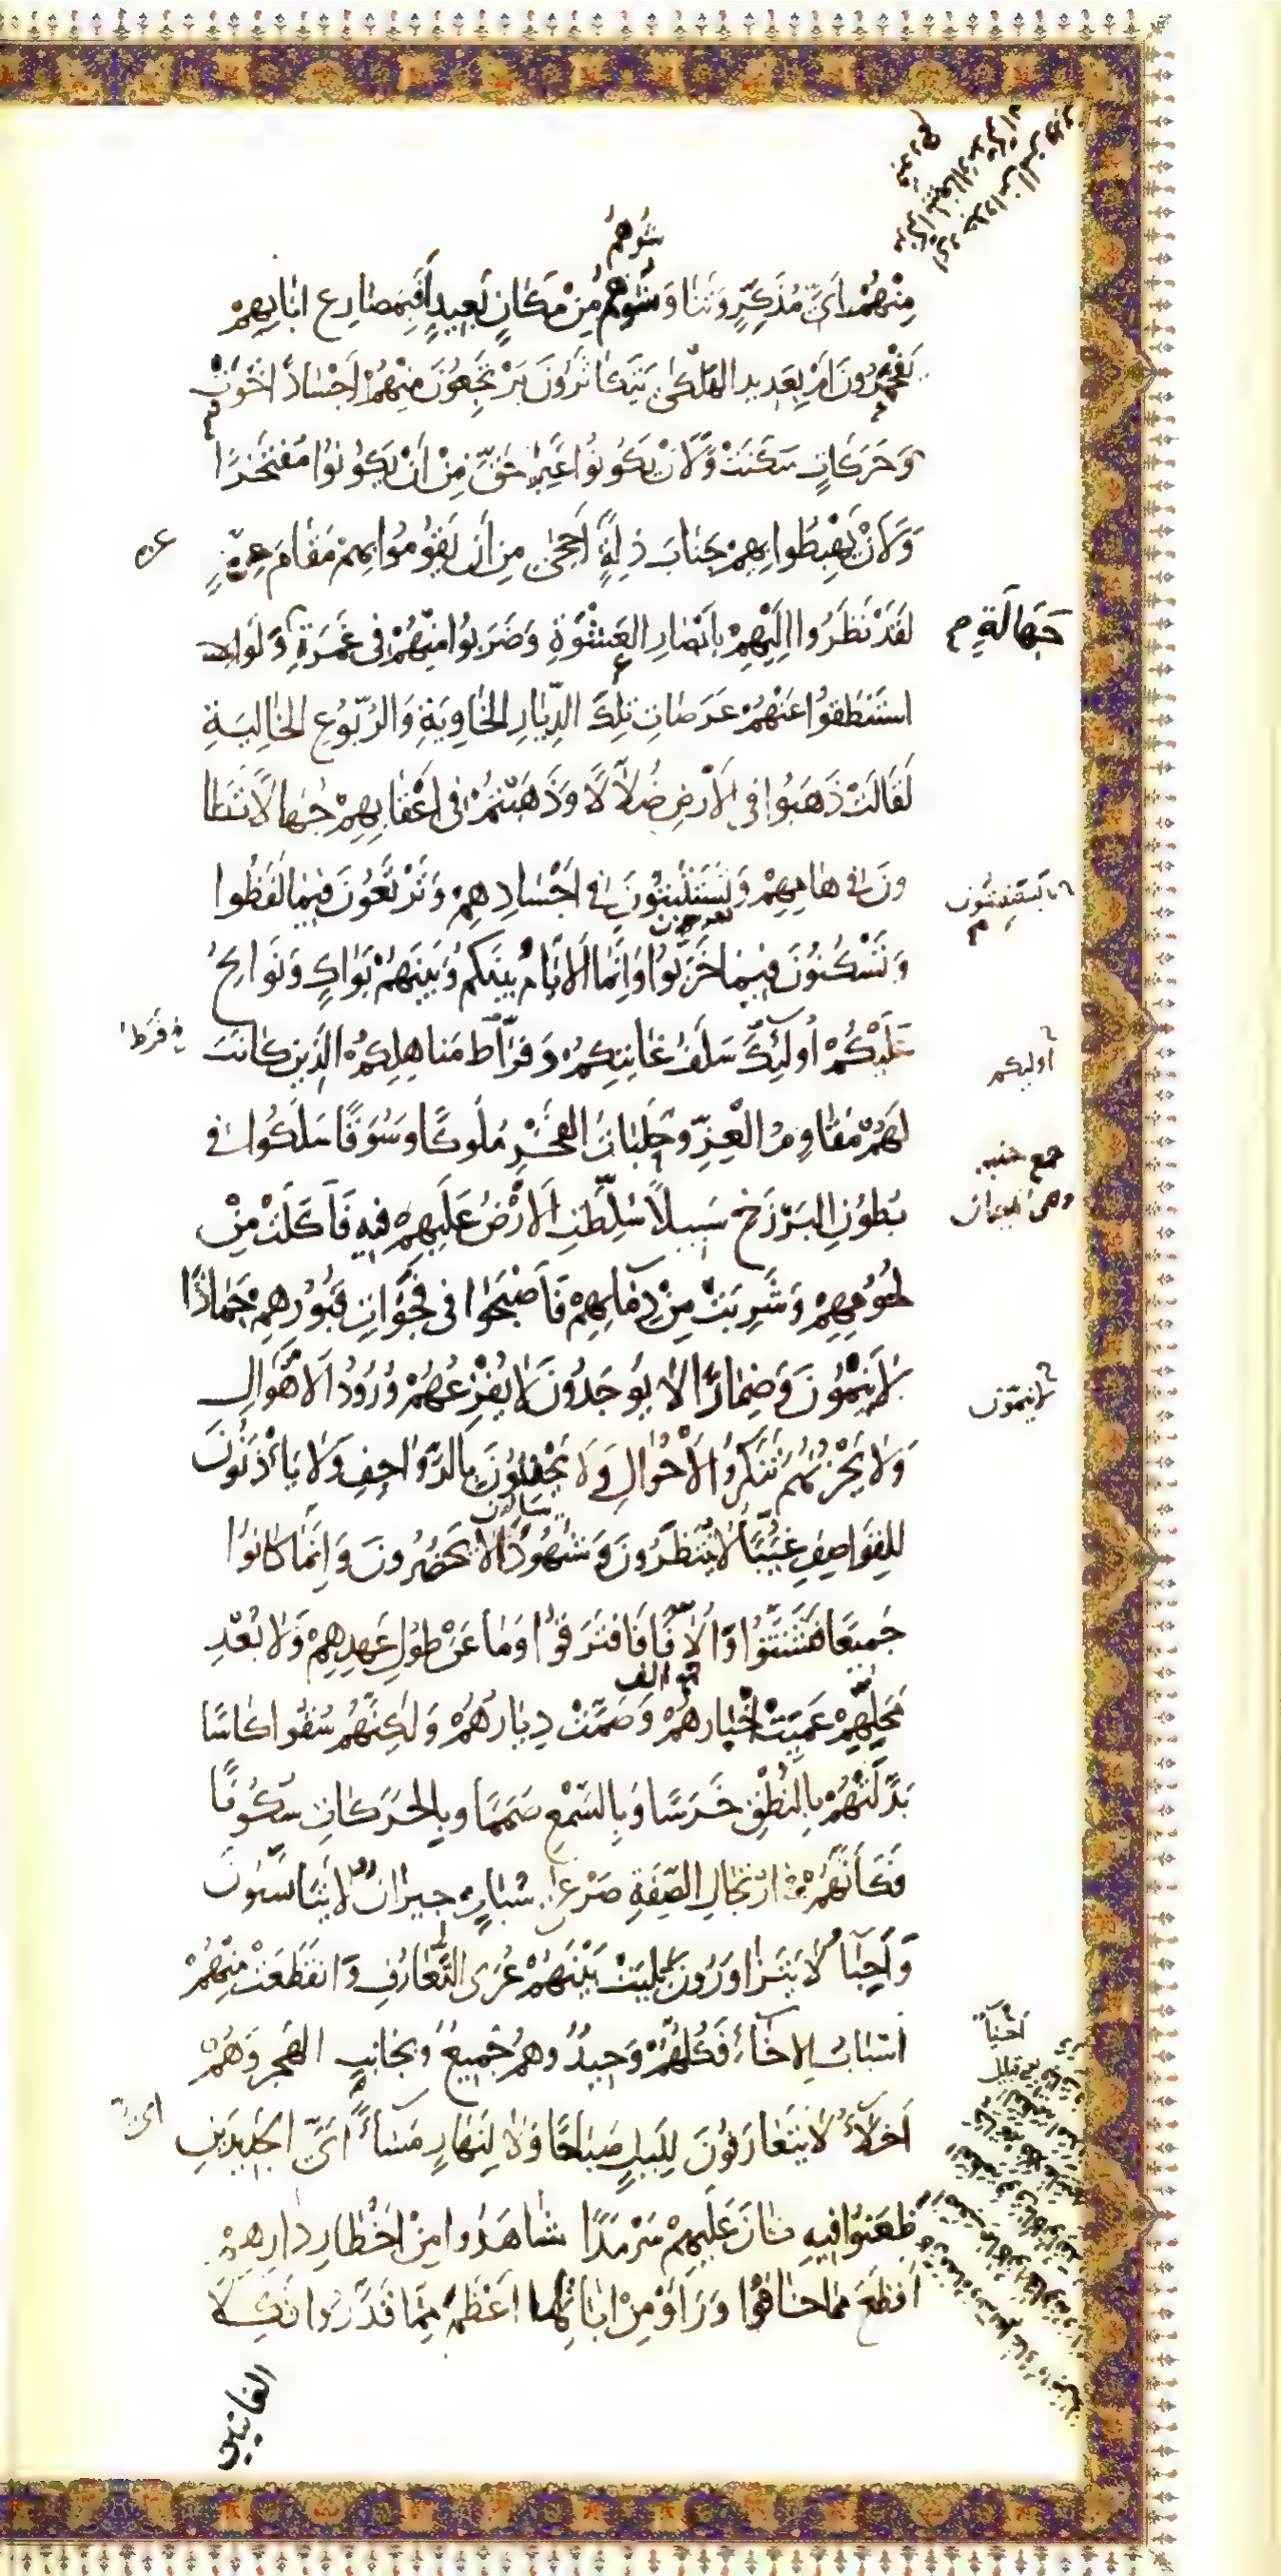 شوهم
مِنْهُمْ اَيَّ مُذَكِّرٍ وَتَنَاوَشُوهُمْ مِنْ مَكَانٍ بَعِيدٍ اَفَبِمَصَارِعِ ابَايِهِمْ
يَفْخَرُونَ اَمْ بِعَدِيدِ الهَلْكىٰ يَتَكَاثَرُونَ يَرْتَجِعُونَ مِنْهُمْ اَجْسَادًا خَوَتْ
وَحَرَكَاتٍ سَكَنَتْ وَلَانْ يَكُونُوا عِبَرًا اَحَقُّ مِنْ اَنْ يَكُونُوا مُفْتَخَرًا
وَلَانْ يَهْبِطُوا بِهِمْ جَنَابَ ذِلَّةٍ اَحْجىٰ مِن اَن يَقُومُوا بِهِمْ مَقَامَ عِزَّةٍ
عزه
لَقَدْ نَظَرُوا اِلَيْهِمْ بِاَبْصَارِ العَشْوَةِ وَضَرَبُوا مِنْهُمْ فِى غَمْرَةِ وَلَوِ
جَهَالَةٍ م
اسْتَنْطَقُوا عَنْهُمْ عَرَصَاتِ تِلْكَ الدِّيَارِ الخَاوِيَةِ وَالرُّبُوعِ الخَالِيَةِ
لَقَالَتْ ذَهَبُوا فِي الاَرْضِ ضُلاَّلًا وَذَهَبْتُمْ فِى اَعْقَابِهِمْ جُهَّالًا تَطَا
ونَ فِى هَامِهِمْ وَتَسْتَنْبِتُونَ فِى اَجْسَادِهِمْ وَتَرْتَعُونَ فِيمَا لَفَظُوا
وَتَسْكُنُونَ فِيمَا خَرَّبُوا وَاِنَّمَا الاَيَّامُ بَيْنَكُمْ وَبَيْنَهُمْ بَوَاكٍ وَنَوَايِحُ
عَلَيْكُمْ اُولَئِكَ سَلَفُ غَايَتِكُمْ وَفُرَّاطُ مَنَاهِلِكُمْ الَّذِينَ كَانَتْ
فرط
اوليكم
لَهُمْ مَقَاوِمُ الْعِزِّ وَحَلَبَاتُ الفَخْرِ مُلُوكًا وَسُوَقًا سَلَكُوا فِى
بُطُونِ البَرْزَخِ سَبِيلًا سُلِّطَتِ الاَرْضُ عَلَيْهِمْ فِيهِ فَاَكَلَتْ مِنْ
لُحُومِهِمْ وَشَرِبَتْ مِنْ دِمَايِهِمْ فَاَصْبَحُوا فِى فَجَوَاتِ قُبُورِهِمْ جَمَادًا
لَا يَنْمُونَ وَضِمَارًا لَا يُوجَدُونَ لَا يُفْزِعُهُمْ وُرُودُ الاَهْوَالِ
لَا ينمون
وَلَا يَحْزُنُهُمْ تَنَكُّرُ الاَحْوَالِ وَلَا يَحْفِلُونَ بِالرَّوَاجِفِ وَلَا يَاْذَنُونَ
لِلْقَوَاصِفِ غُيَّبًا لَا يُنْتَظَرُونَ وَشُهُودًا لَا يَحْضُرُونَ وَاِنَّمَا كَانُوا
جَمِيعًا فَتَشَتَّتُوا وَاُلَّافًا فَافْتَرَقُوا وَمَا عَنْ طُولِ عَهْدِهِمْ وَلَا بُعْدِ
مَحَلِّهِمْ عَمِيَتْ اَخْبَارُهُمْ وَصَمَّتْ دِيَارُهُمْ وَلَكِنَّهُمْ سُقُوا كَاسًا
بَدَّلَتْهُمْ بِالنُّطْقِ خَرَسًا وَبِالسَّمْعِ صَمَمًا وَبِالحَرَكَاتِ سُكُونًا
فَكَاَنَّهُمْ فِى ارْتِجَالِ الصِّفَةِ صَرْعىٰ سُبَاتٍ جِيرَانٌ لَا يَتَاَنَّسُونَ
وَاَحِبَّاءُ لَا يَتَزَاوَرُونَ بَلِيَتْ بَيْنَهُمْ عُرَى التَّعَارُفِ وَانْقَطَعَتْ مِنْهُمْ
اَسْبَابُ الاِخَاءِ فَكُلُّهُمْ وَحِيدٌ وَهُمْ جَمِيعٌ وَبِجَانِبِ الهَجْرِ وَهُمْ
اَخِلَّاءُ لَا يَتَعَارَفُونَ لِلَيْلٍ صَبَاحًا وَلَا لِنَهَارٍ مَسَاءً اَيُّ الجَدِيدَيْنِ
ظَعَنُوا فِيهِ كَانَ عَلَيْهِمْ سَرْمَدًا شَاهَدُوا مِنْ اَخْطَارِ دَارِهِمْ
اَفْظَعَ مِمَّا خَافُوا وَرَاَوْ مِنْ ايَاتِهَا اَعْظَمَ مِمَّا قَدَّرُوا فَكِلَا
الغايتين